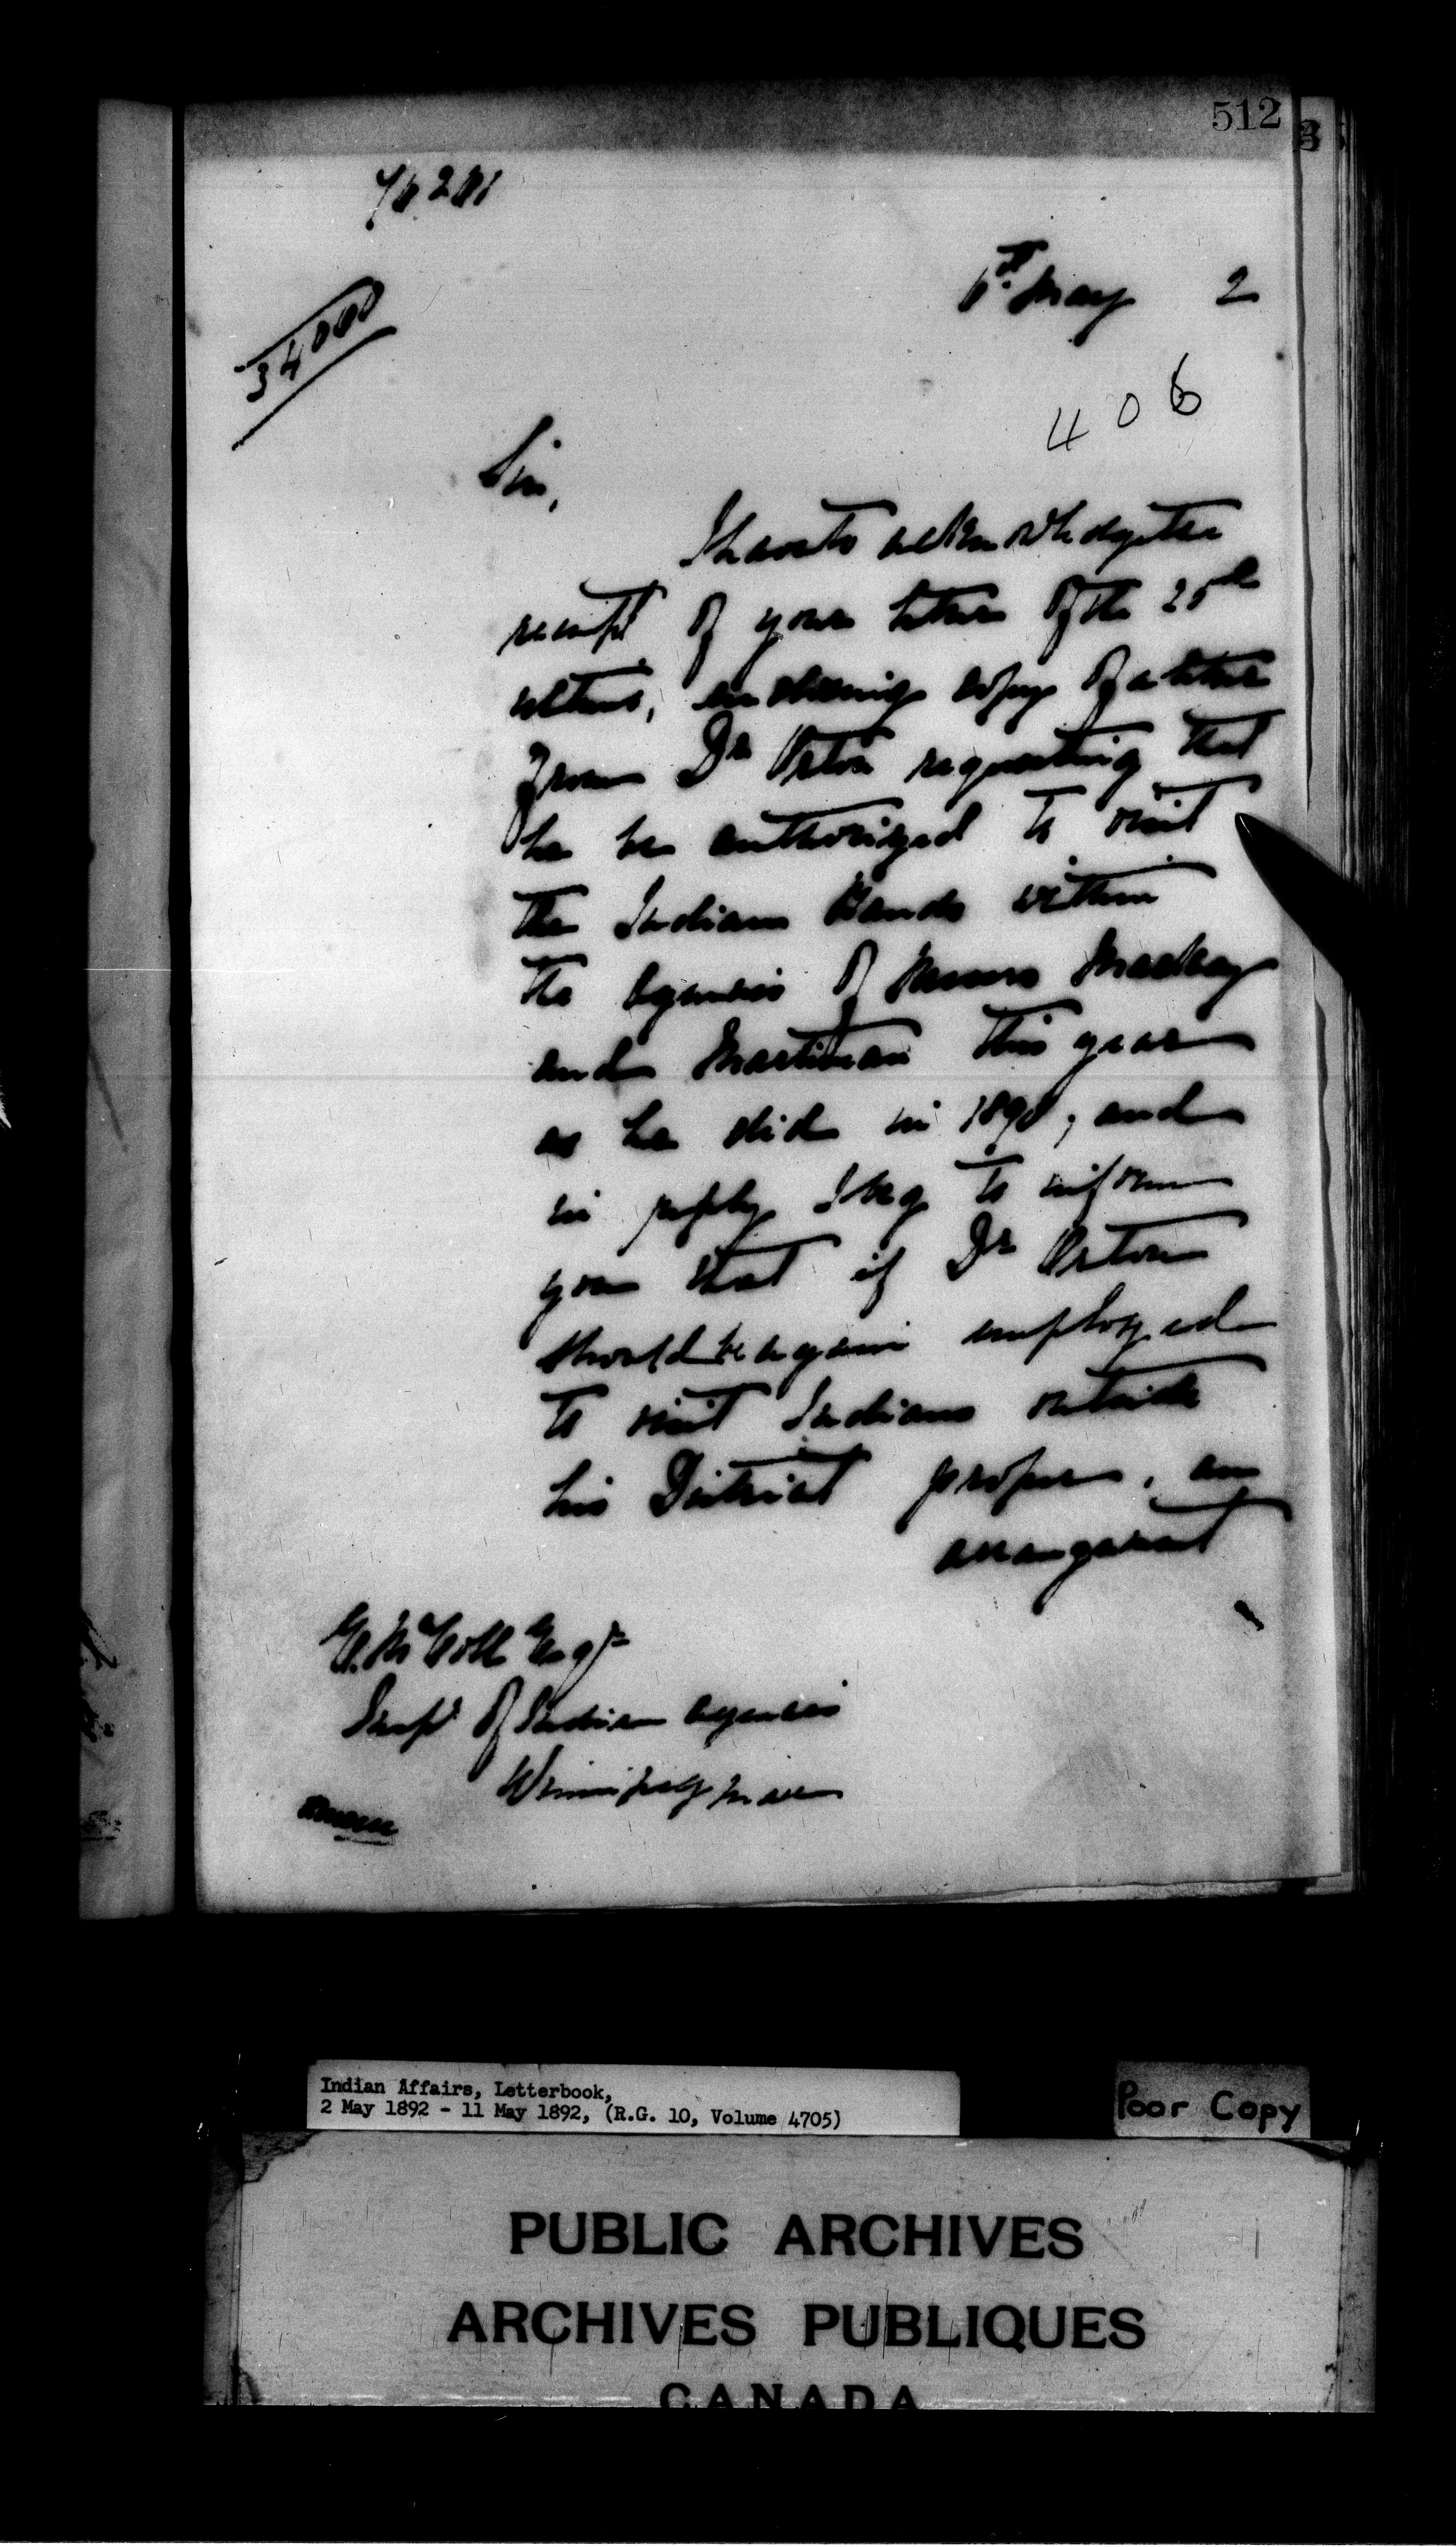 512
34000
6th May 2
406
Sir,
I have to acknowledge the
receipt of your letter of the 25th
ultimo, enclosing copy of a letter
from Dr Orton requesting that
he be authorized to visit
the Indian Bands within
the Agencies of Messrs Mackay
and Martineau this year
as he did in 1890, and
in reply I beg to inform
you that if Dr Orton
should be again employed
to visit Indians outside
his District proper, an
arrangement
E. McColl Esqr
Supt of Indian Agencies
Winnipeg Man
Indian Affairs, Letterbook,
2 May 1892 - 11 May 1892, (R.G. 10, Volume 4705)
Poor Copy
PUBLIC ARCHIVES
ARCHIVES PUBLIQUES
CANADA